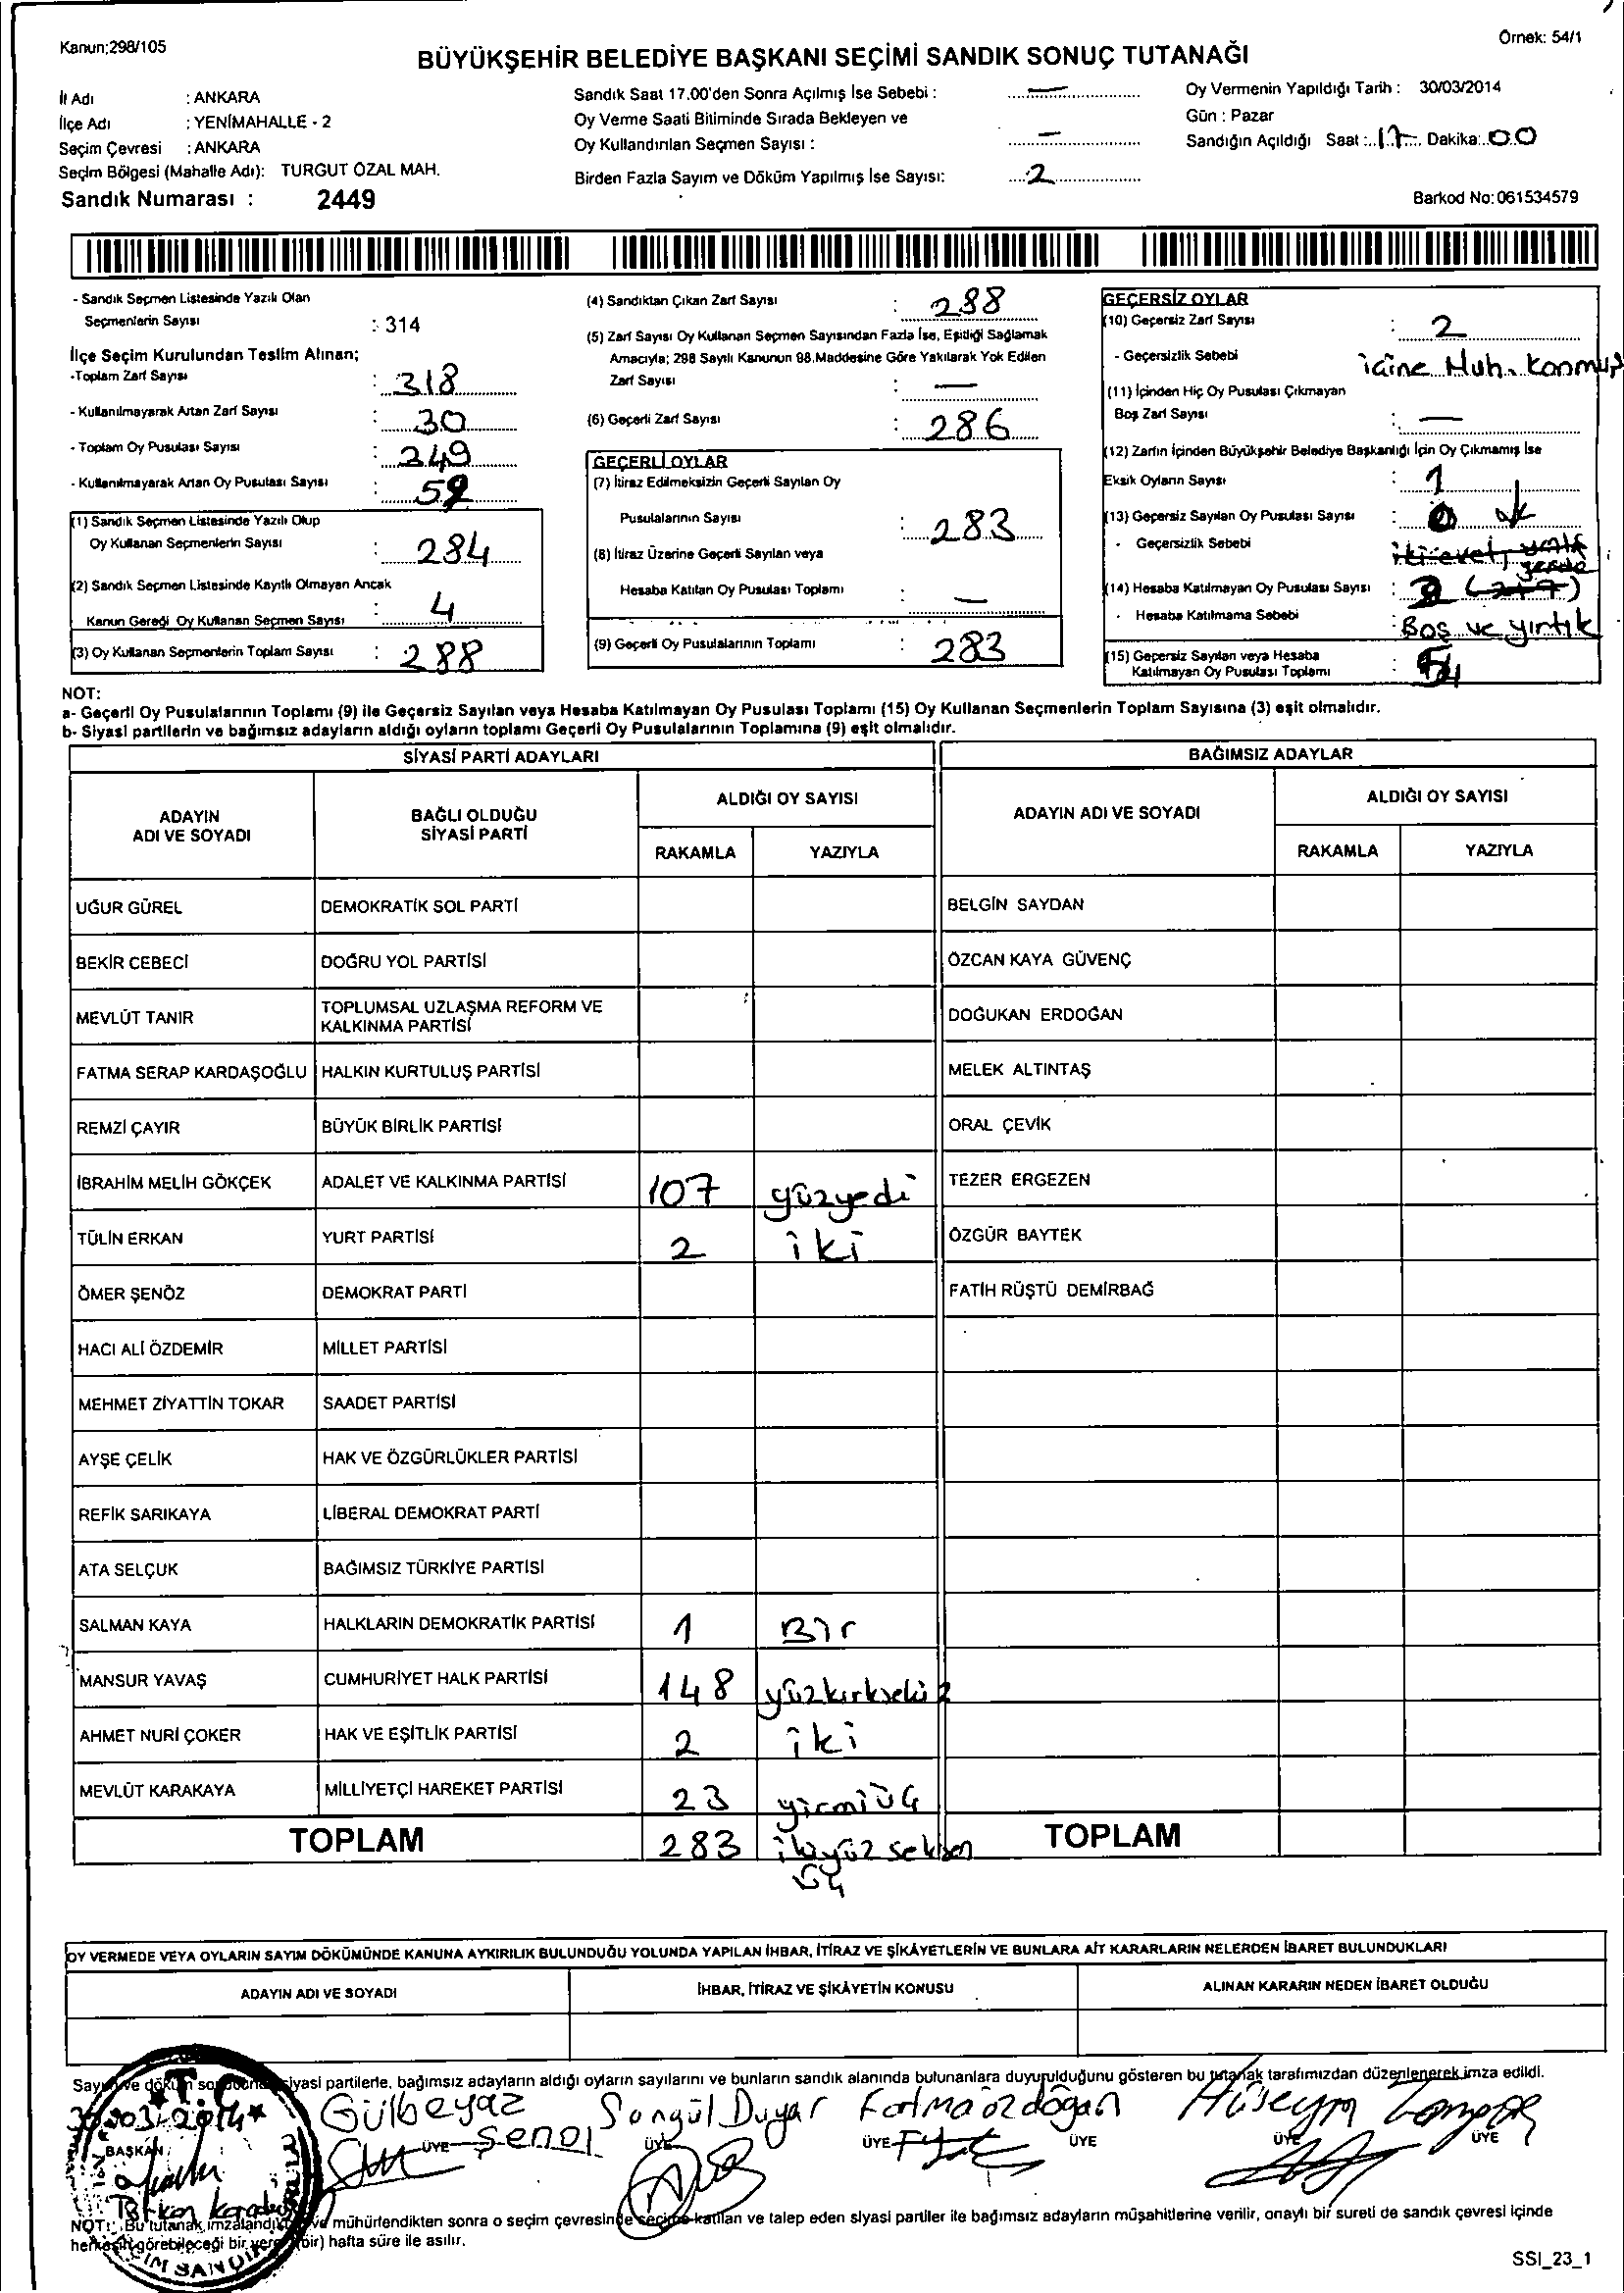 Kanun;298/105
Örnek: 54/1
BÜYÜKŞEHİR BELEDİYE BAŞKANI SEÇİMİ SANDIK SONUÇ TUTANAĞI
İl Adı : ANKARA
İlçe Adı : YENİMAHALLE - 2
Seçim Çevresi : ANKARA
Seçim Bölgesi (Mahalle Adı): TURGUT ÖZAL MAH.
Sandık Numarası : 2449
Sandık Saat 17.00'den Sonra Açılmış İse Sebebi : —
Oy Verme Saati Bitiminde Sırada Bekleyen ve
Oy Kullandırılan Seçmen Sayısı : —
Birden Fazla Sayım ve Döküm Yapılmış İse Sayısı: 2
Oy Vermenin Yapıldığı Tarih : 30/03/2014
Gün : Pazar
Sandığın Açıldığı Saat : 17 Dakika: 00
Barkod No:061534579
- Sandık Seçmen Listesinde Yazılı Olan
Seçmenlerin Sayısı : 314
İlçe Seçim Kurulundan Teslim Alınan;
-Toplam Zarf Sayısı : 318
- Kullanılmayarak Artan Zarf Sayısı : 30
- Toplam Oy Pusulası Sayısı : 349
- Kullanılmayarak Artan Oy Pusulası Sayısı :
(1) Sandık Seçmen Listesinde Yazılı Olup
Oy Kullanan Seçmenlerin Sayısı : 284
(2) Sandık Seçmen Listesinde Kayıtlı Olmayan Ancak
Kanun Gereği Oy Kullanan Seçmen Sayısı : 4
(3) Oy Kullanan Seçmenlerin Toplam Sayısı : 288
(4) Sandıktan Çıkan Zarf Sayısı : 288
(5) Zarf Sayısı Oy Kullanan Seçmen Sayısından Fazla İse, Eşitliği Sağlamak
Amacıyla; 298 Sayılı Kanunun 98.Maddesine Göre Yakılarak Yok Edilen
Zarf Sayısı : —
(6) Geçerli Zarf Sayısı : 286
GEÇERLİ OYLAR
(7) İtiraz Edilmeksizin Geçerli Sayılan Oy
Pusulalarının Sayısı : 283
(8) İtiraz Üzerine Geçerli Sayılan veya
Hesaba Katılan Oy Pusulası Toplamı : —
(9) Geçerli Oy Pusulalarının Toplamı : 283
GEÇERSİZ OYLAR
(10) Geçersiz Zarf Sayısı : 2
- Geçersizlik Sebebi içine Muh. konmuş
(11) İçinden Hiç Oy Pusulası Çıkmayan
Boş Zarf Sayısı : —
(12) Zarfın İçinden Büyükşehir Belediye Başkanlığı İçin Oy Çıkmamış İse
Eksik Oyların Sayısı : 1
(13) Geçersiz Sayılan Oy Pusulası Sayısı :
- Geçersizlik Sebebi
(14) Hesaba Katılmayan Oy Pusulası Sayısı :
- Hesaba Katılmama Sebebi : Boş ve yırtık
(15) Geçersiz Sayılan veya Hesaba
Katılmayan Oy Pusulası Toplamı :
NOT:
a- Geçerli Oy Pusulalarının Toplamı (9) ile Geçersiz Sayılan veya Hesaba Katılmayan Oy Pusulası Toplamı (15) Oy Kullanan Seçmenlerin Toplam Sayısına (3) eşit olmalıdır.
b- Siyasi partilerin ve bağımsız adayların aldığı oyların toplamı Geçerli Oy Pusulalarının Toplamına (9) eşit olmalıdır.
SİYASİ PARTİ ADAYLARI BAĞIMSIZ ADAYLAR
ADAYIN
ADI VE SOYADI
BAĞLI OLDUĞU
SİYASİ PARTİ
ALDIĞI OY SAYISI
RAKAMLA YAZIYLA
ADAYIN ADI VE SOYADI
ALDIĞI OY SAYISI
RAKAMLA YAZIYLA
UĞUR GÜREL DEMOKRATİK SOL PARTİ BELGİN SAYDAN
BEKİR CEBECİ DOĞRU YOL PARTİSİ ÖZCAN KAYA GÜVENÇ
MEVLÜT TANIR TOPLUMSAL UZLAŞMA REFORM VE
KALKINMA PARTİSİ DOĞUKAN ERDOĞAN
FATMA SERAP KARDAŞOĞLU HALKIN KURTULUŞ PARTİSİ MELEK ALTINTAŞ
REMZİ ÇAYIR BÜYÜK BİRLİK PARTİSİ ORAL ÇEVİK
İBRAHİM MELİH GÖKÇEK ADALET VE KALKINMA PARTİSİ 107 yüzyedi TEZER ERGEZEN
TÜLİN ERKAN YURT PARTİSİ 2 iki ÖZGÜR BAYTEK
ÖMER ŞENÖZ DEMOKRAT PARTİ FATİH RÜŞTÜ DEMİRBAĞ
HACI ALİ ÖZDEMİR MİLLET PARTİSİ
MEHMET ZİYATTİN TOKAR SAADET PARTİSİ
AYŞE ÇELİK HAK VE ÖZGÜRLÜKLER PARTİSİ
REFİK SARIKAYA LİBERAL DEMOKRAT PARTİ
ATA SELÇUK BAĞIMSIZ TÜRKİYE PARTİSİ
SALMAN KAYA HALKLARIN DEMOKRATİK PARTİSİ 1 Bir
MANSUR YAVAŞ CUMHURİYET HALK PARTİSİ 148 yüzkırksekiz
AHMET NURİ ÇOKER HAK VE EŞİTLİK PARTİSİ 2 iki
MEVLÜT KARAKAYA MİLLİYETÇİ HAREKET PARTİSİ 23 yirmiüç
TOPLAM 283 ikiyüz seksen
üç
TOPLAM
OY VERMEDE VEYA OYLARIN SAYIM DÖKÜMÜNDE KANUNA AYKIRILIK BULUNDUĞU YOLUNDA YAPILAN İHBAR, İTİRAZ VE ŞİKÂYETLERİN VE BUNLARA AİT KARARLARIN NELERDEN İBARET BULUNDUKLARI
ADAYIN ADI VE SOYADI İHBAR, İTİRAZ VE ŞİKÂYETİN KONUSU ALINAN KARARIN NEDEN İBARET OLDUĞU
Sayım ve döküm sonucunda siyasi partilerle, bağımsız adayların aldığı oyların sayılarını ve bunların sandık alanında bulunanlara duyurulduğunu gösteren bu tutanak tarafımızdan düzenlenerek imza edildi.
T.C
30.03.2014
Gülbeyaz Songül Duyar Fatma özdoğan Hüseyin
Şenol
BAŞKAN ÜYE ÜYE ÜYE ÜYE ÜYE ÜYE
NOT: Bu tutanak, imzalandıktan ve mühürlendikten sonra o seçim çevresinde seçime katılan ve talep eden siyasi partiler ile bağımsız adayların müşahitlerine verilir, onaylı bir sureti de sandık çevresi içinde
herkesin görebileceği bir yere (bir) hafta süre ile asılır.
SSI_23_1